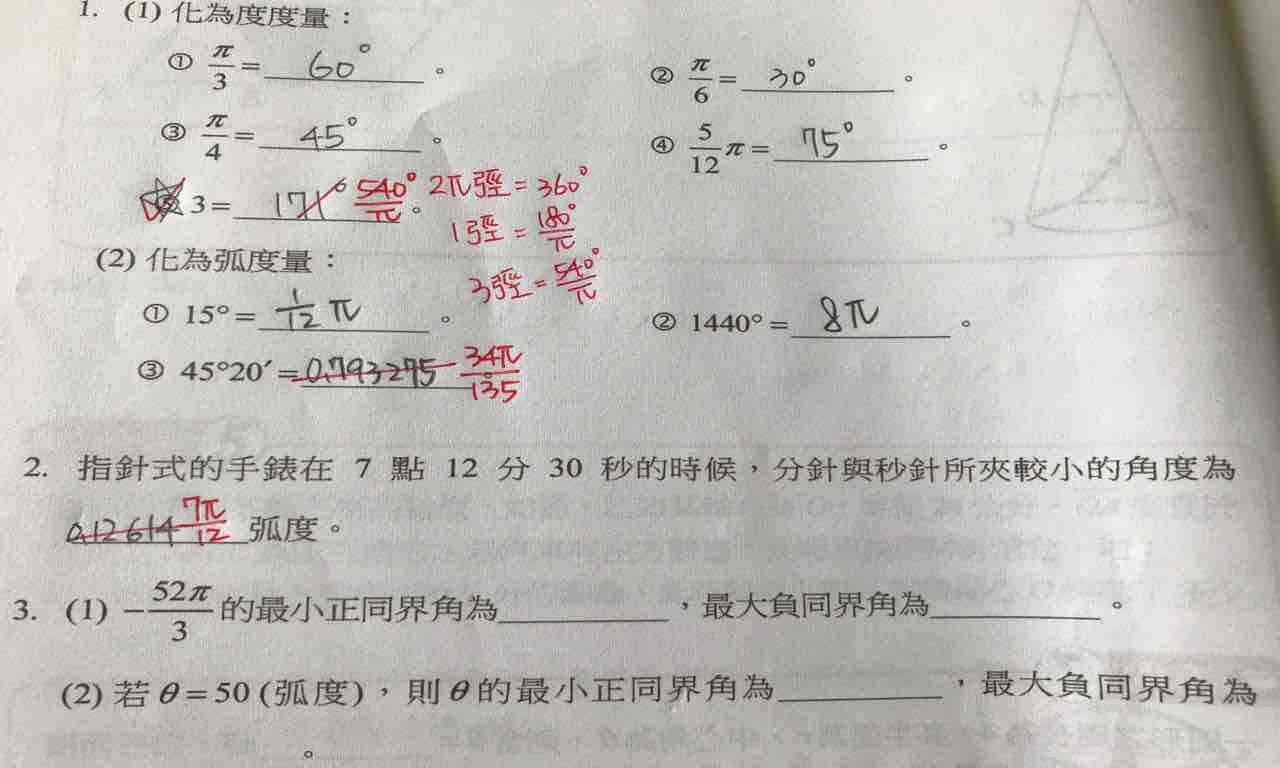 1. (1) 化為度度量：
① π/3 = 60° 。 ② π/6 = 30° 。
③ π/4 = 45° 。 ④ 5/12 π = 75° 。
⑤ 3 = 171° 540°/π 。 2π弳 = 360°
1弳 = 180°/π
(2) 化為弧度量：
3弳 = 540°/π
① 15° = 1/12 π 。 ② 1440° = 8π 。
③ 45°20′ = 0.793275 34π/135 。
2. 指針式的手錶在 7 點 12 分 30 秒的時候，分針與秒針所夾較小的角度為
0.12614 7π/12 弧度。
3. (1) -52π/3 的最小正同界角為 ，最大負同界角為 。
(2) 若 θ = 50 (弧度)，則 θ 的最小正同界角為 ，最大負同界角為
。